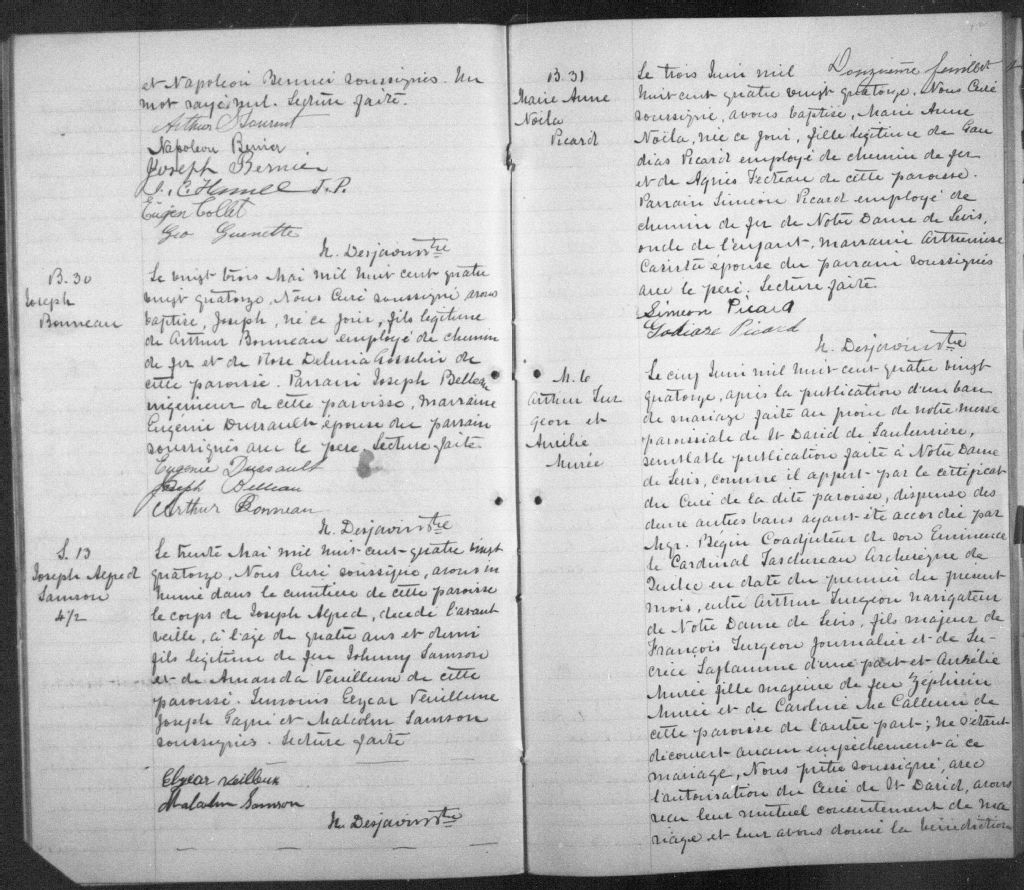 et Napoleon Bernier soussignés. Un
mot rayé nul. Lecture faite.
Arthur St Laurent
Napoleon Bernier
Joseph Bernier
J. P.
Eugen Collet
Geo Guenette
N. Desjavins ptre
B. 30
Joseph
Bonneau
Le vingt trois Mai mil huit cent quatre
vingt quatorze, Nous Curé soussigné avons
baptisé, Joseph, né ce jour, fils legitime
de Arthur Bonneau employé de chemin
de fer et de Rose Delima Gosselin de
cette paroisse. Parrain Joseph Belleau
ingenieur de cette paroisse, Marraine
Eugénie Dussault épouse du parrain
soussignés avec le pere. Lecture faite.
Eugenie Dussault
Joseph Belleau
Arthur Bonneau
N. Desjavins ptre
S. 13
Joseph Alfred
Samson
4 1/2
Le trente Mai mil huit-cent-quatre vingt
quatorze, Nous Curé soussigné, avons in
humé dans le cimetière de cette paroisse
le corps de Joseph Alfred, decede l'avant
veille, à l'age de quatre ans et demi
fils legitime de feu Johnny Samson
et de Amanda Veuilleux de cette
paroisse. Temoins Elzear Veuilleux
Joseph Gagné et Malcolm Samson
soussignés. Lecture faite
Elzear veilleux
Malcolm Samson
N. Desjavins ptre
Douzieme feuillet
B. 31
Marie Anne
Noila
Picard
Le trois Juin mil
huit cent quatre vingt quatorze. Nous Curé
soussigné, avons baptisé, Marie Anne
Noila, née ce jour, fille legitime de Gau
dias Picard employé de chemin de fer
et de Agnes Fecteau de cette paroisse.
Parrain Siméon Picard employé de
chemin de fer de Notre Dame de Levis,
oncle de l'enfant, marraine Arthémise
épouse du parrain soussignés
avec le peré. Lecture faite
Siméon Picard
Picard
N. Desjavins ptre
M. 6
Arthur Tur
geon et
Aurélie
Murée
Le cinq Juin mil huit cent quatre vingt
quatorze, après la publication d'un ban
de mariage faite au prone de notre messe
paroissiale de St David de Lauberivière,
semblable publication faite à Notre Dame
de Levis, comme il appert par le certificat
du Curé de la dite paroisse, dispense des
deux autres bans ayant été accordée par
Mgr. Bégin Coadjuteur de son Eminence
le Cardinal Taschereau Archevêque de
Quebec en date du premier du présent
mois, entre Arthur Turgeon navigateur
de Notre Dame de Levis, fils majeur de
François Turgeon Journalier et de Lu-
crèce Laflamme d'une part et Aurélie
Murée fille majeure de feu Zephirin
Murée et de Caroline Mc Callum de
cette paroisse de l'autre part; ne s'étant
découvert aucun empechement à ce
mariage, Nous prêtre soussigné, avec
l'autorisation du Curé de St David, avons
reçu leur mutuel consentement de ma
riage et leur avons donné la bénédiction